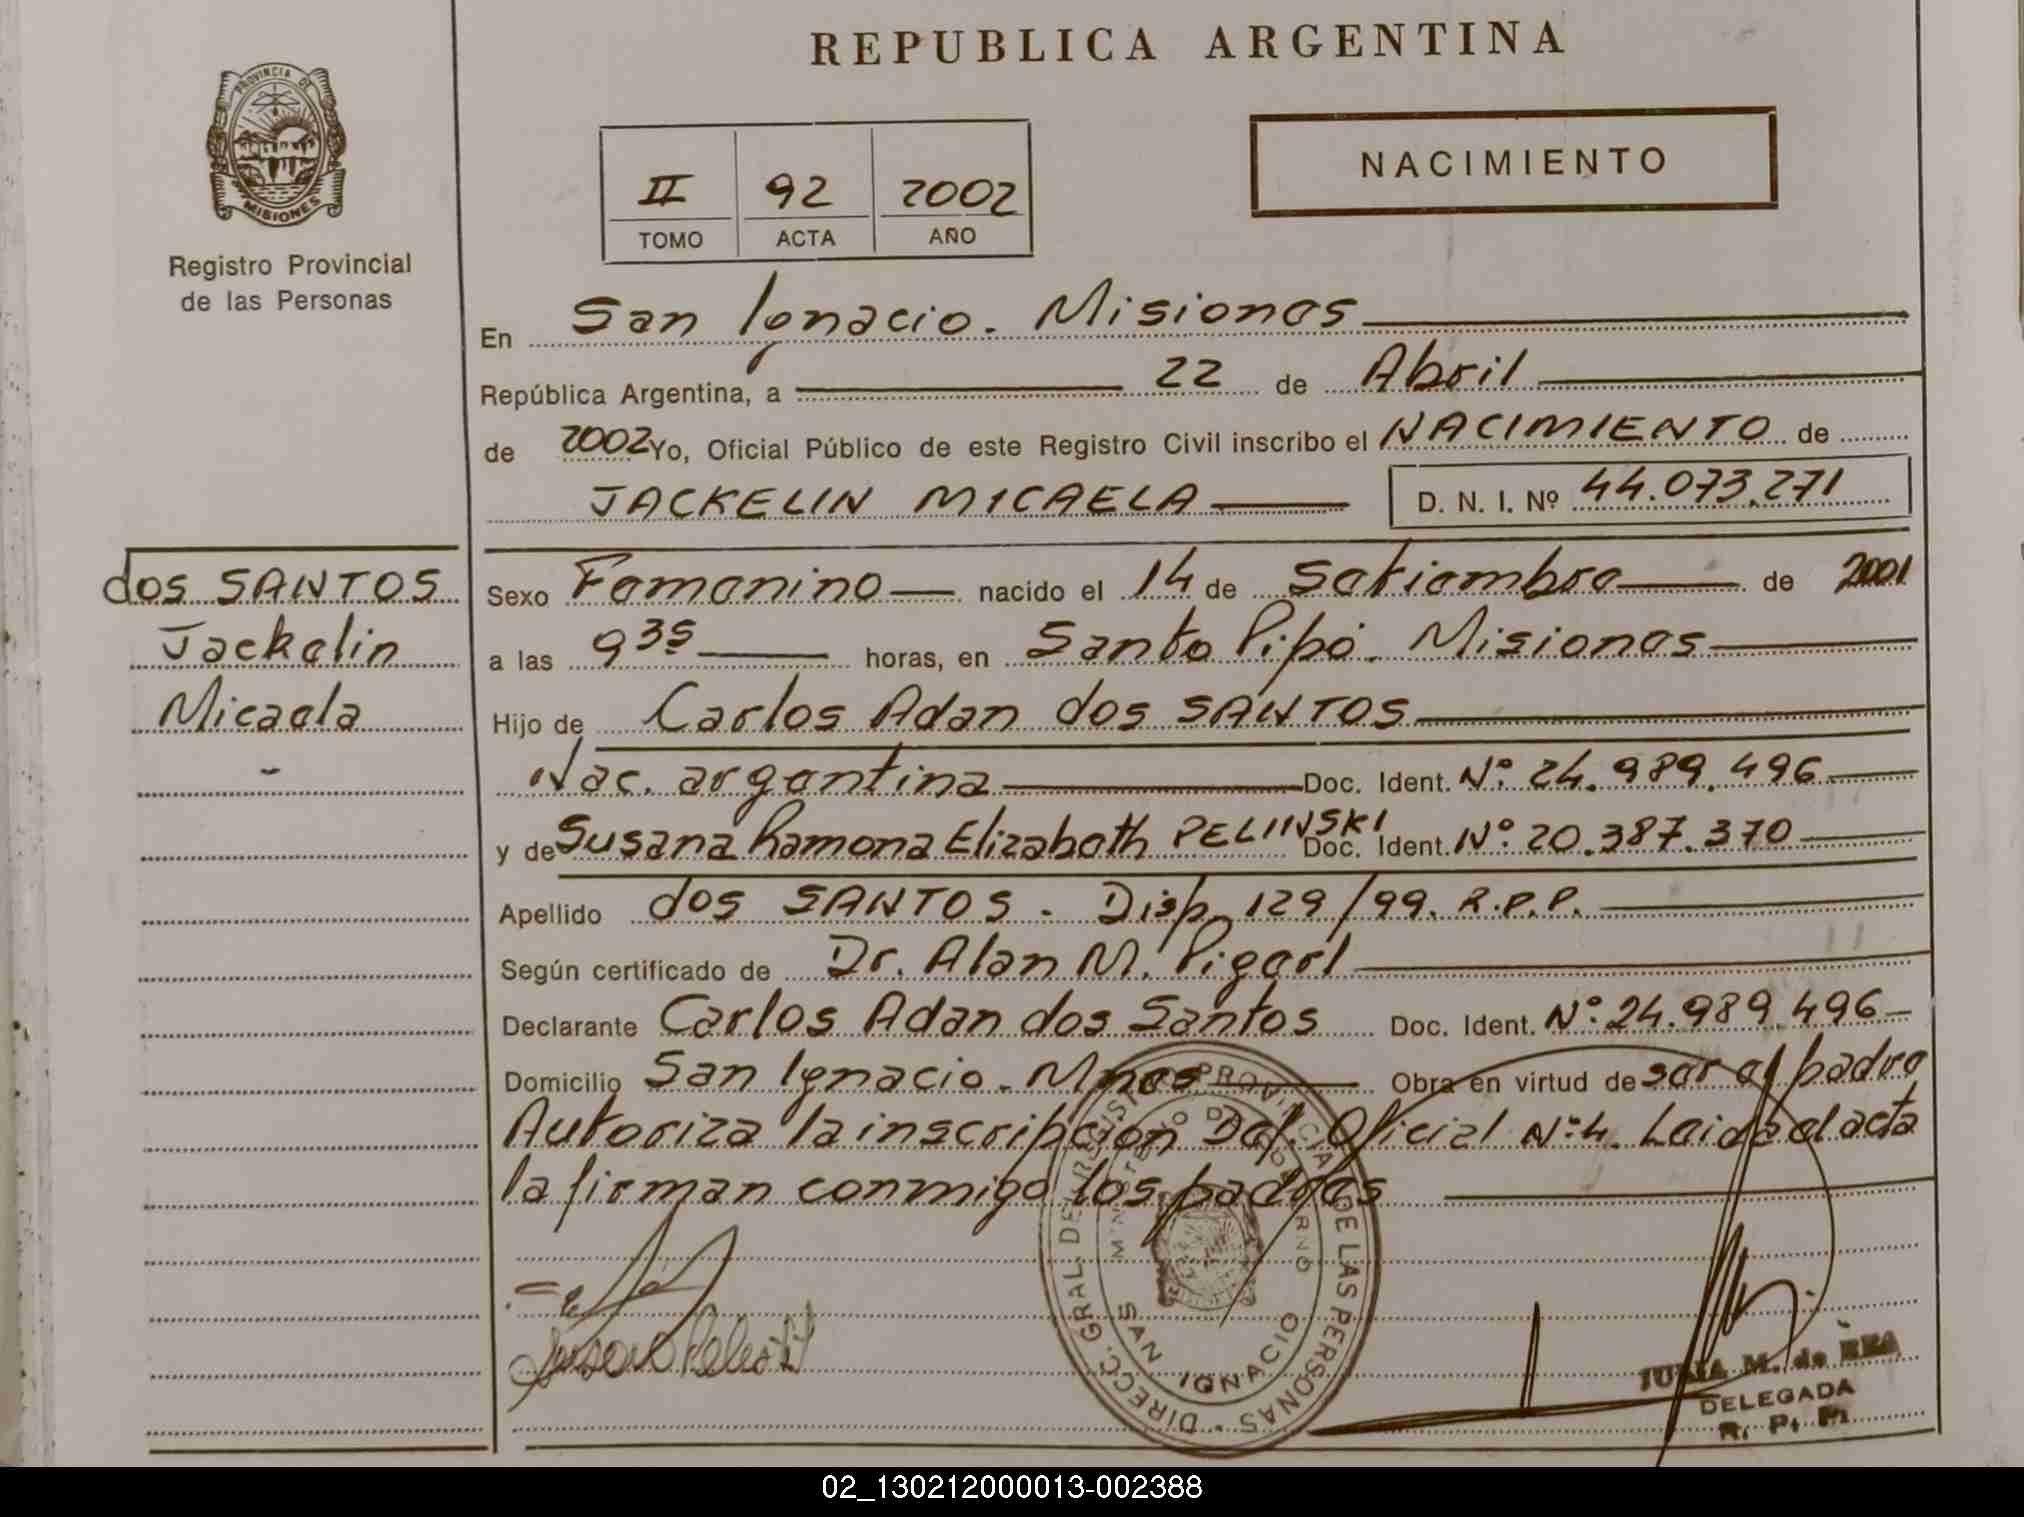 REPUBLICA ARGENTINA
PROVINCIA DE
MISIONES
Registro Provincial
de las Personas
II 92 2002
TOMO ACTA AÑO
NACIMIENTO
En San Ignacio. Misiones
República Argentina, a 22 de Abril
de 2002 Yo, Oficial Público de este Registro Civil inscribo el NACIMIENTO de
JACKELIN MICAELA D. N. I. Nº 44.073.271
dos SANTOS
Jackelin
Micaela
Sexo Femenino nacido el 14 de Setiembre de 2001
a las 9 35 horas, en Santo Pipó. Misiones
Hijo de Carlos Adan dos SANTOS
Nac. argentina Doc. Ident. Nº: 24.989.496
y de Susana Ramona Elizabeth PELINSKI Doc. Ident. Nº: 20.387.370
Apellido dos SANTOS. Disp. 129/99. R.P.P.
Según certificado de Dr. Alan M.
Declarante Carlos Adan dos Santos Doc. Ident. Nº: 24.989.496
Domicilio San Ignacio. Mnes Obra en virtud de ser el padre
Autoriza la inscripción Del. Oficial Nº:4. Leida el acta
la firman conmigo los padres
DIRECC. GRAL. DEL REGISTRO PROVINCIAL DE LAS PERSONAS
MINISTERIO DE GOBIERNO
SAN IGNACIO
M. de REA
DELEGADA
R. P. P.
02_130212000013-002388